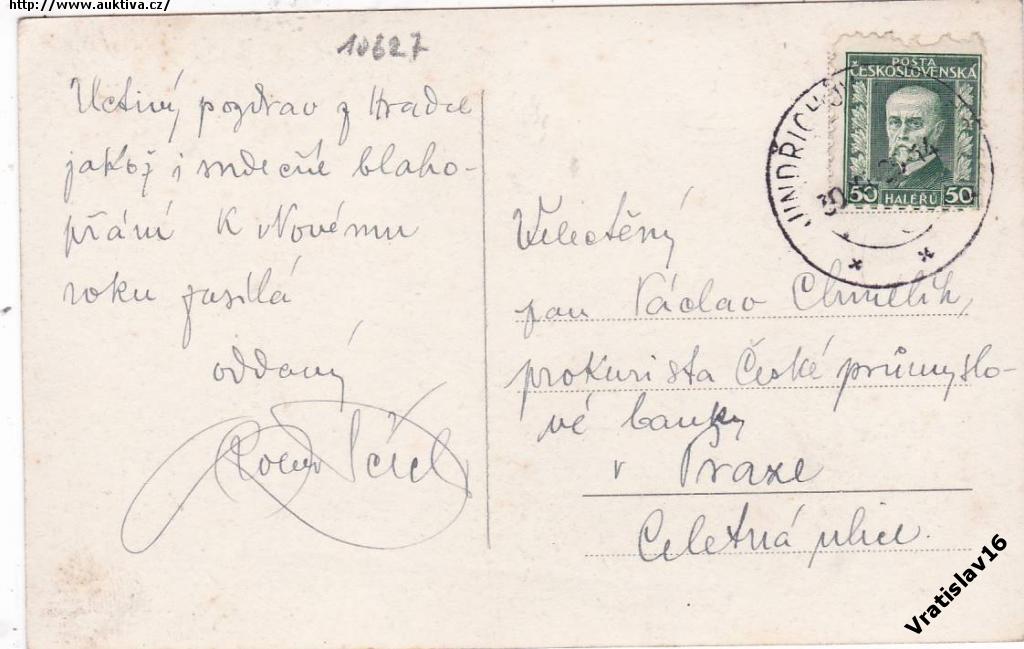 http://www.auktiva.cz/
10627
Uctivý pozdrav z Hradce
jakož i srdečné blaho-
přání k Novému
roku zasílá
oddaný
POŠTA
ČESKOSLOVENSKÁ
50 HALÉRŮ 50
JINDŘICHŮV
Velectěný
pan Václav Chmelík,
prokurista České průmyslo-
vé banky
v Praze
Celetná ulice.
Vratislav16